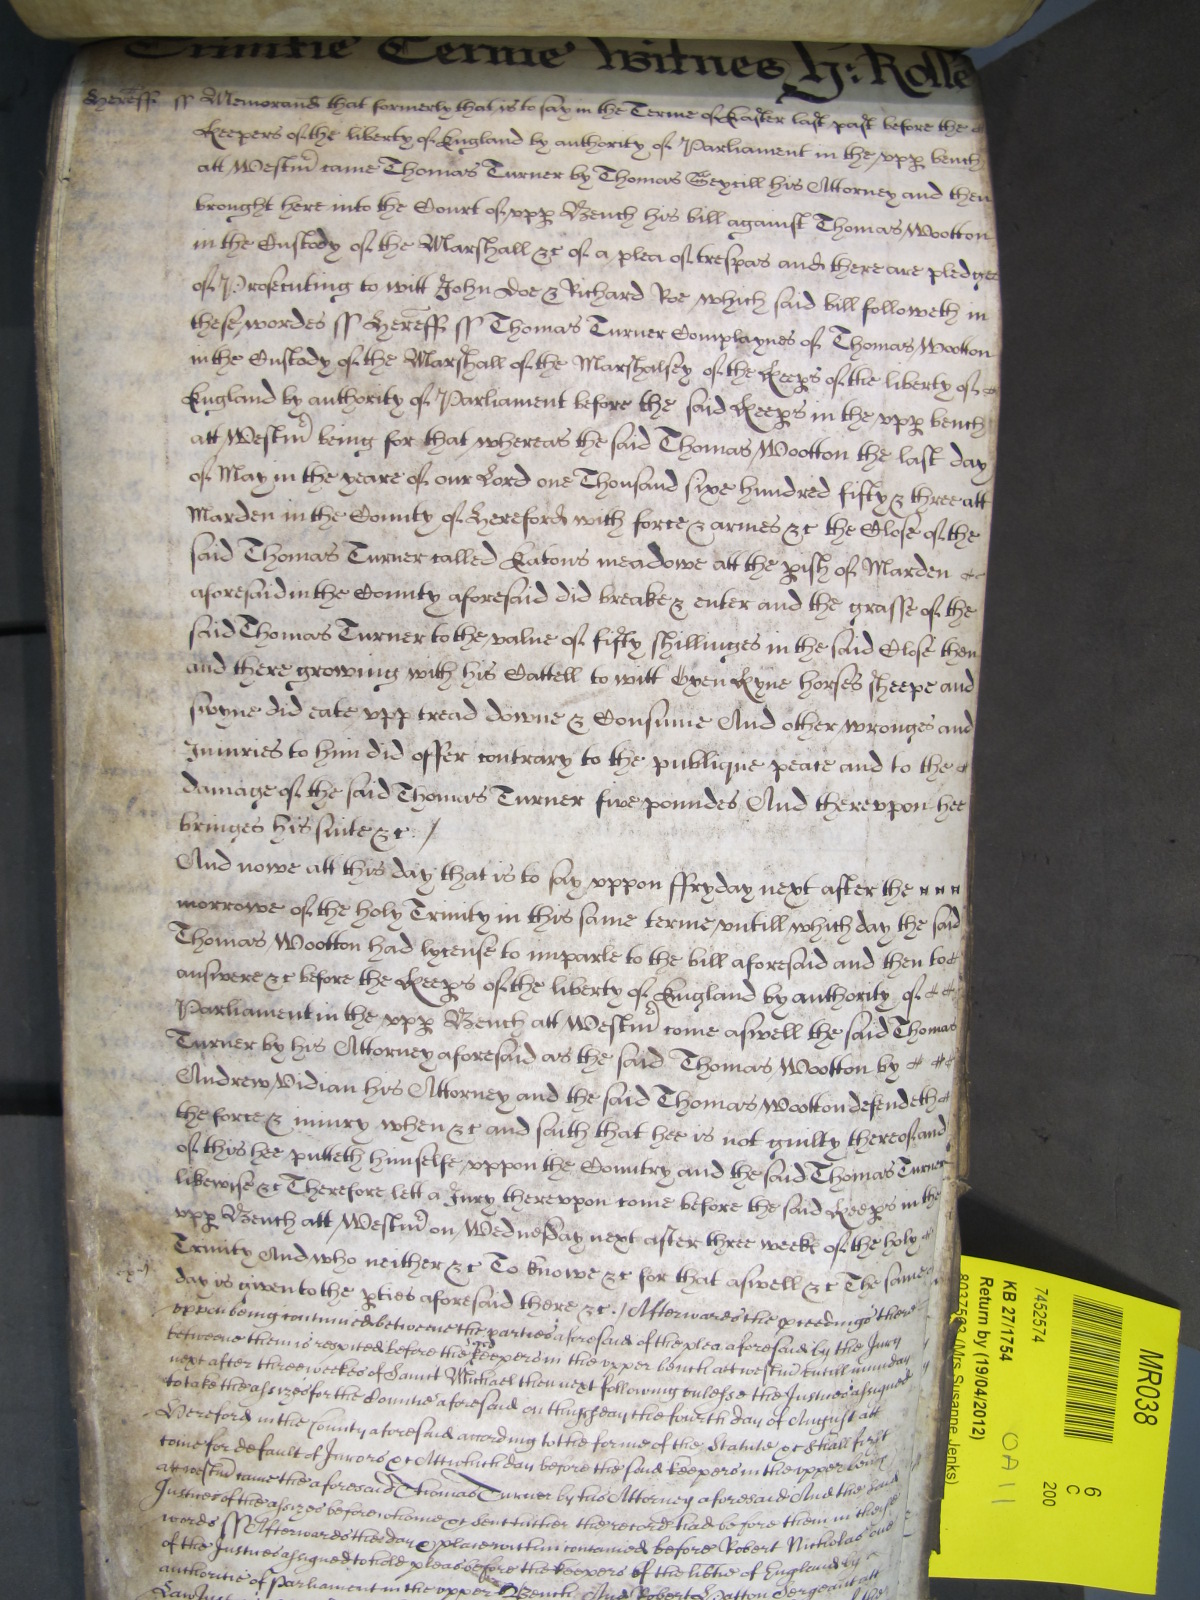 Trinitie Terme Witnes H: Rolle
Hereff ss Memorand that formerly that is to say in the Terme of Easter last past before the
Keepers of the liberty of England by authority of Parliament in the upp bench
att Westm came Thomas Turner by Thomas Seycill his Attorney and then
brought here into the Court of upp Bench his bill against Thomas Wootton
in the Custody of the Marshall &c of a plea of trespas and there are pledges
of Prosecuting to witt John Doe & Richard Roe which said bill followeth in
these wordes ss Hereff ss Thomas Turner Complaynes of Thomas Wootton
in the Custody of the Marshall of the Marshalsey of the Keeps of the liberty of
England by authority of Parliament before the said Keeps in the upp bench
att Westm being for that whereas the said Thomas Wootton the last day
of May in the yeare of our Lord one Thousand sixe hundred fifty & three att
Marden in the County of Hereford with force & armes &c the Close of the
said Thomas Turner called Eatons meadowe att the pish of Marden
aforesaid in the County aforesaid did breake & enter and the grasse of the
said Thomas Turner to the value of fifty shillinges in the said Close then
and there growing with his Cattell to witt Oxen Kyne horses sheepe and
swyne did eate upp tread downe & Consume And other wronges and
Iniuries to him did offer contrary to the publique peace and to the
damage of the said Thomas Turner five poundes And thereupon hee
bringes his suite &c
And nowe att this day that is to say uppon ffryday next after the
morrowe of the holy Trinity in this same terme untill which day the said
Thomas Wootton had lycense to imparle to the bill aforesaid and then to
answere &c before the Keeps of the liberty of England by authority of
Parliament in the upp Bench att Westm come aswell the said Thomas
Turner by his Attorney aforesaid as the said Thomas Wootton by
Andrew Vidian his Attorney and the said Thomas Wootton defendeth
the force & iniury when &c and saith that hee is not guilty thereof and
of this hee putteth himselfe uppon the Country and the said Thomas Turner
likewise &c Therefore lett a Jury thereupon come before the said Keeps in the
upp Bench att Westm on Wednesday next after three weeks of the holy
Trinity And who neither &c To knowe &c for that aswell &c The same
day is given to the pties aforesaid there &c. / Afterwards the pceedings there
uppon being continued betweene the parties aforesaid of the plea aforesaid by the Jury
betweene them is respited before the said keepers in the upper bench att westm untill munday
next after three weekes of Saint Michael then next following unlesse the Justices assigned
to take the assizes for the Countie aforesaid on thursday the fourth day of August att
Hereford in the County aforesaid according to the forme of the Statute &c shall first
come for default of Jurors &c Att which day before the said keepers in the upper bench
att westm came the aforesaid Thomas Turner by his Attorney aforesaid And the said
Justices of the assizes before whome &c sent hither the record had before them in these
words ss Afterwards the day & place within contained before Robert Nicholas one
of the Justices assigned to hold pleas before the keepers of the libtie of England by
authoritie of Parliament in the upper Bench And Robert Hatton Sergeant att
MR038
6
C
200
7452574
KB 27/1754
Return by (19/04/2012)
(Mrs Susanne Jenks)
OA 11